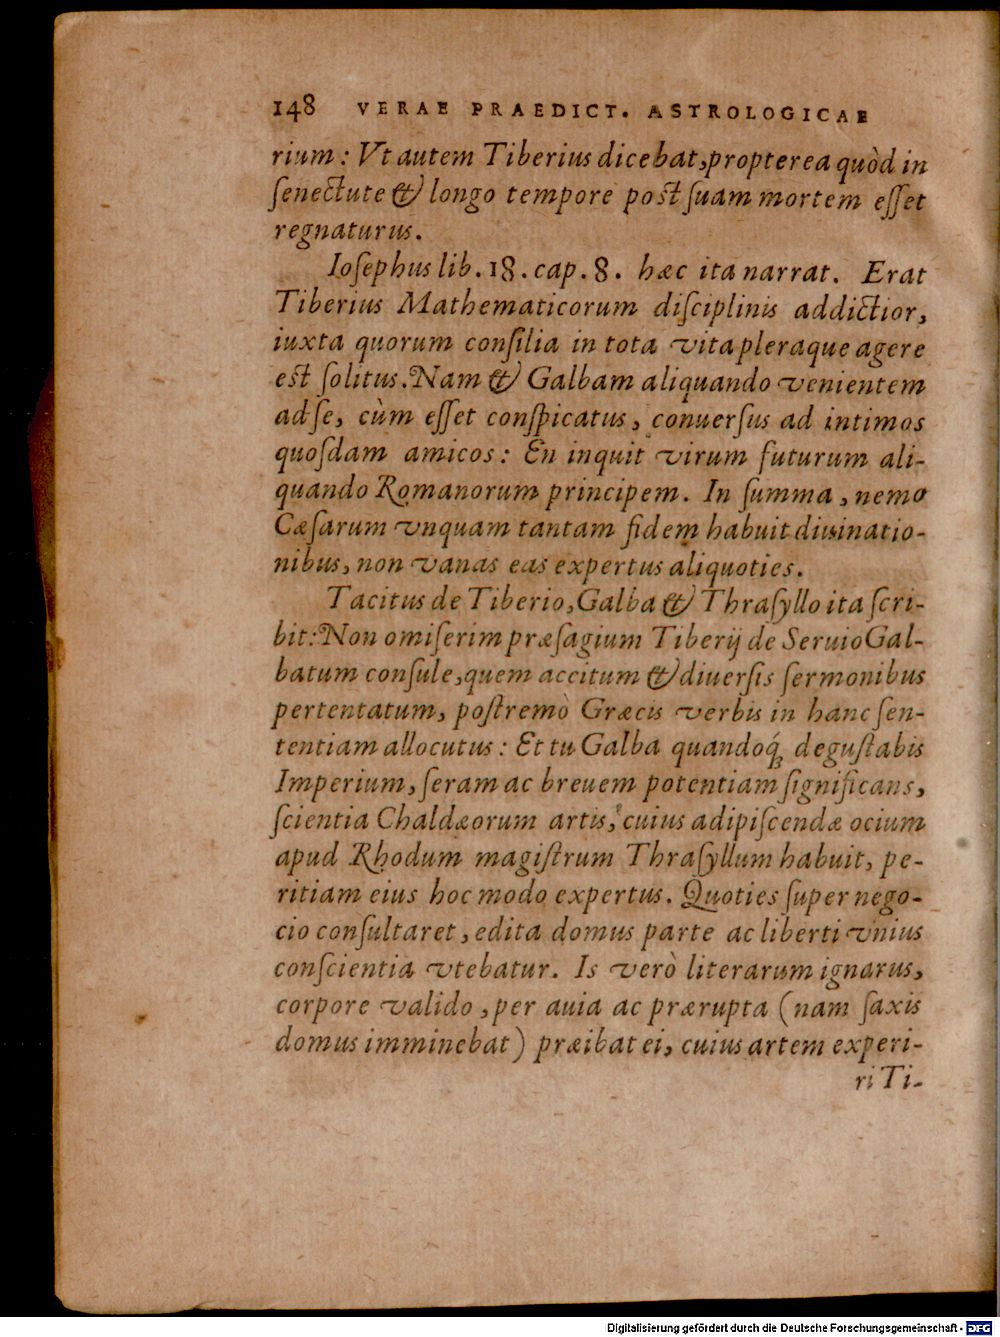 148 VERAE PRAEDICT. ASTROLOGICAE
rium: Vt autem Tiberius dicebat, propterea quòd in
ſenectute & longo tempore poſt ſuam mortem eſſet
regnaturus.
Ioſephus lib. 18. cap. 8. hæc ita narrat. Erat
Tiberius Mathematicorum diſciplinis addictior,
iuxta quorum conſilia in tota vita pleraque agere
eſt ſolitus. Nam & Galbam aliquando venientem
ad ſe, cùm eſſet conſpicatus, conuerſus ad intimos
quoſdam amicos: En inquit virum futurum ali-
quando Romanorum principem. In ſumma, nemo
Cæſarum vnquam tantam fidem habuit diuinatio-
nibus, non vanas eas expertus aliquoties.
Tacitus de Tiberio, Galba & Thraſyllo ita ſcri-
bit: Non omiſerim præſagium Tiberij de Seruio Gal-
ba tum conſule, quem accitum & diuerſis ſermonibus
pertentatum, poſtremò Græcis verbis in hanc ſen-
tentiam allocutus: Et tu Galba quandoq́; deguſtabis
Imperium, ſeram ac breuem potentiam ſignificans,
ſcientia Chaldæorum artis, cuius adipiſcendæ ocium
apud Rhodum magiſtrum Thraſyllum habuit, pe-
ritiam eius hoc modo expertus. Quoties ſuper nego-
cio conſultaret, edita domus parte ac liberti vnius
conſcientia vtebatur. Is verò literarum ignarus,
corpore valido, per auia ac prærupta (nam ſaxis
domus imminebat) præibat ei, cuius artem experi-
ri Ti-
Digitalisierung gefördert durch die Deutsche Forschungsgemeinschaft - DFG